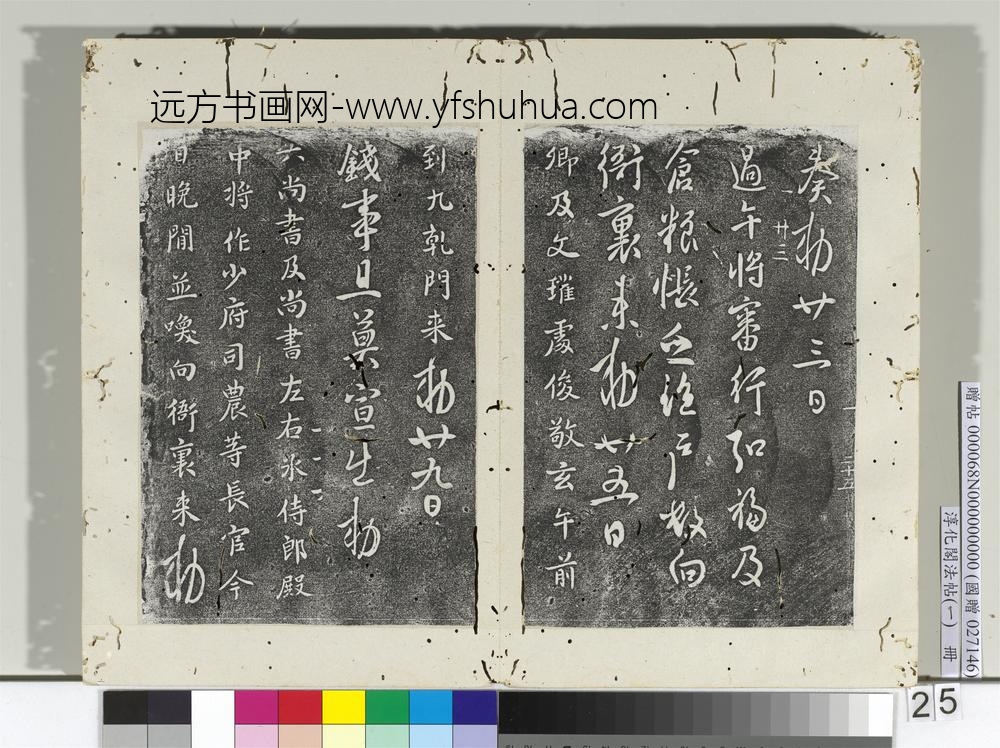 远方书画网-www.yfshuhua.com
奏勅廿三日
廿三
過午將審行弘福及
倉粮帳
戶數向
衙裏来勅廿五日
卿及文瓘處俊敬玄午前
到九乾門来勅廿九日
錢事旦莫宣生勅
六尚書及尚書左右丞侍郎殿
中將作少府司農等長官今
日晚間並喚向衙裏来勅
二十五
贈帖 000068N000000000 (國贈 027146)
淳化閣法帖(一) 冊
25